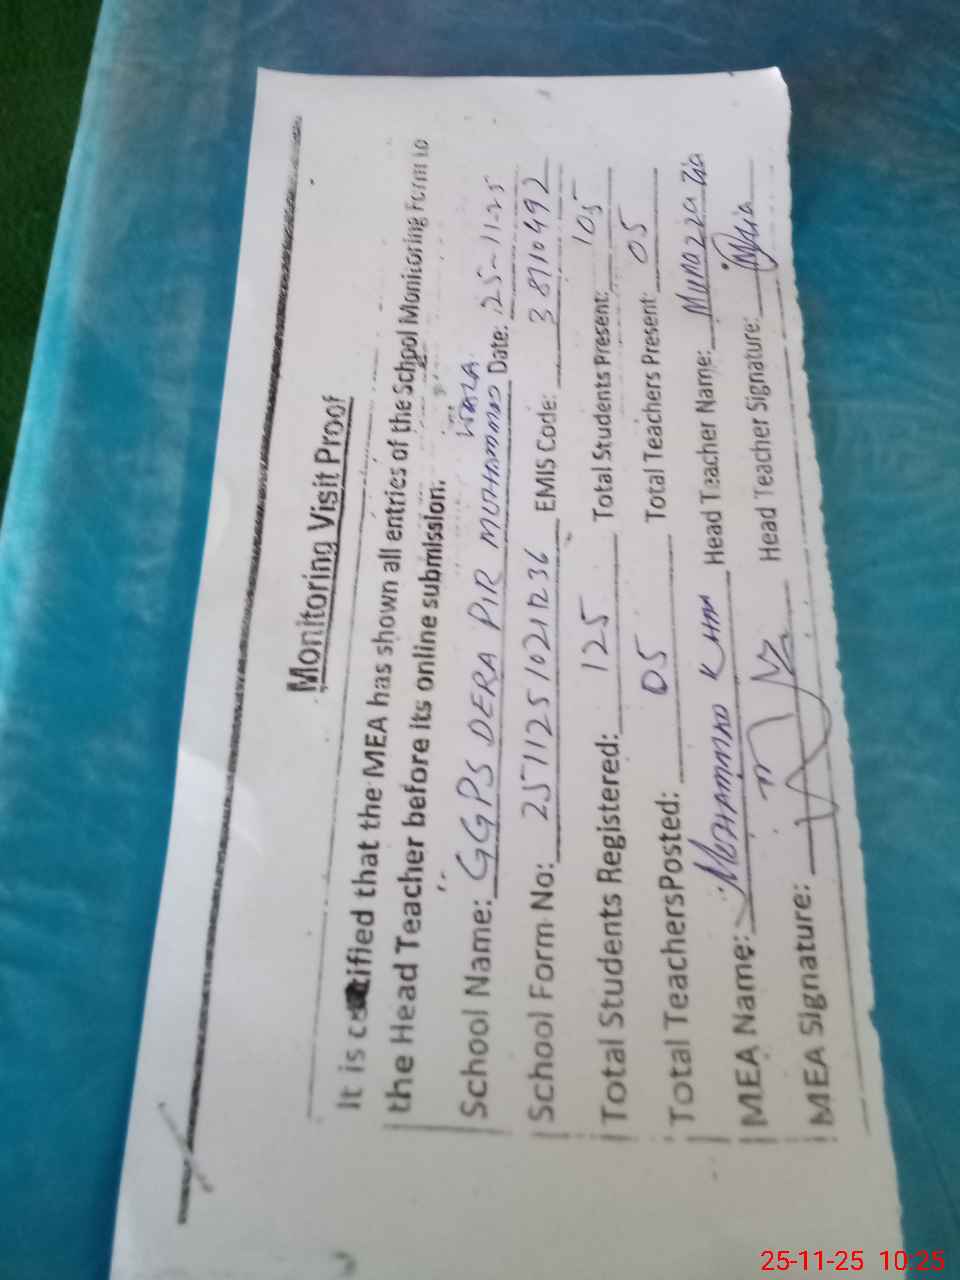 Monitoring Visit Proof
It is certified that the MEA has shown all entries of the School Monitoring Form to
the Head Teacher before its online submission.
School Name: GGPS DERA PIR MUHAMMAD WALA Date: 25-11-25
School Form No: 25711251021236 EMIS Code: 38710492
Total Students Registered: 125 Total Students Present: 105
Total TeachersPosted: 05 Total Teachers Present: 05
MEA Name: MUHAMMAD KHAN Head Teacher Name: Munazza Zia
MEA Signature: Head Teacher Signature:
25-11-25 10:25